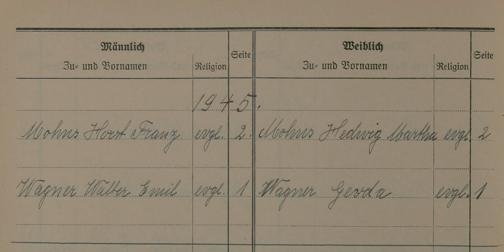 Männlich Weiblich
Zu- und Vornamen Religion Seite Zu- und Vornamen Religion Seite
1945.
Mohns Horst Franz evgl. 2. Mohns Hedwig Martha evgl. 2
Wagner Walter Emil evgl. 1 Wagner Gerda evgl. 1